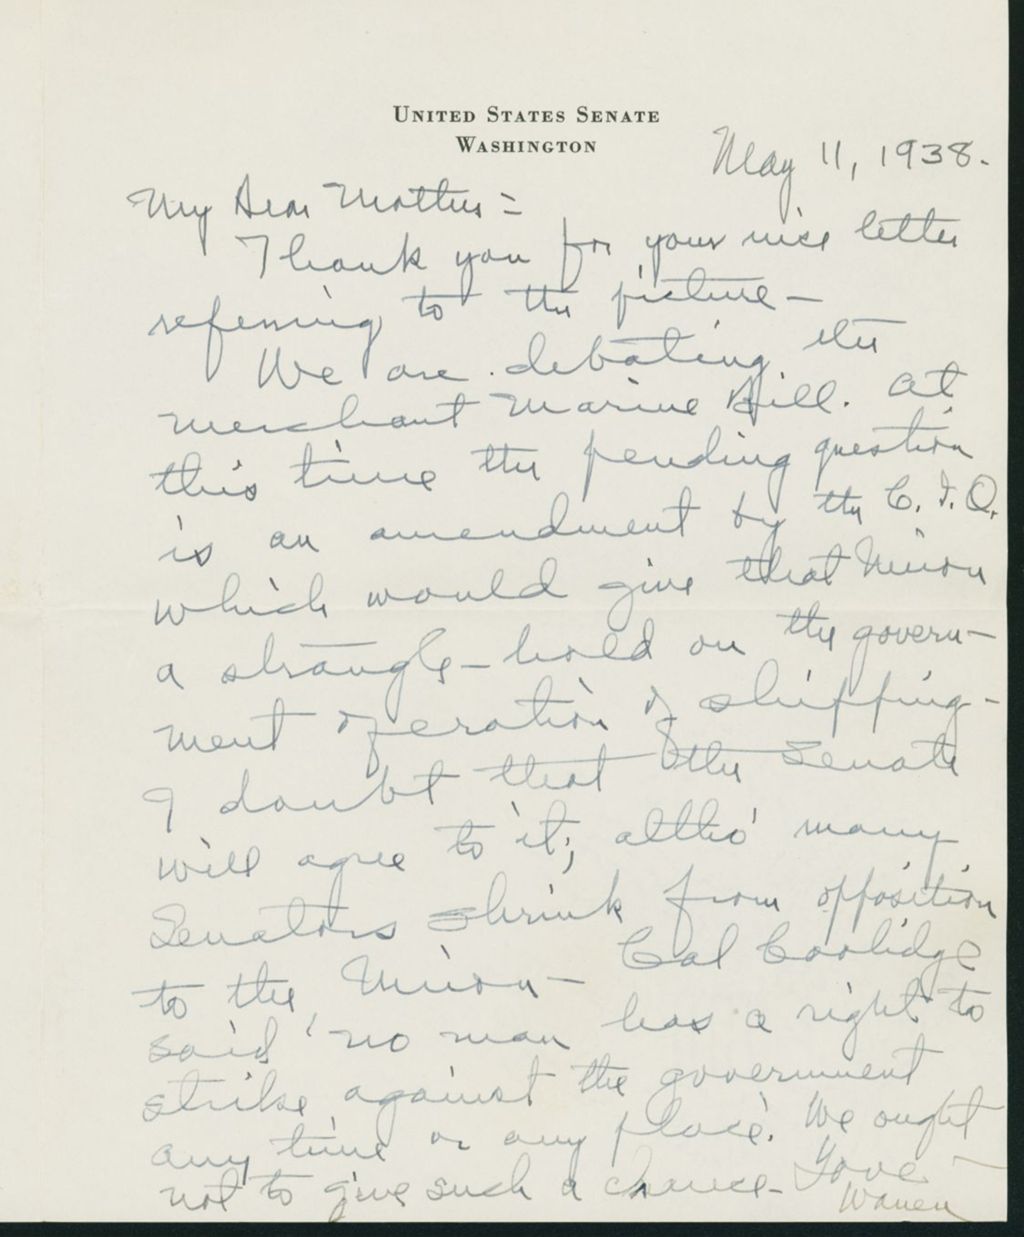 UNITED STATES SENATE
WASHINGTON
May 11, 1938.
My Dear Mother =
Thank you for your nice letter
referring to the picture —
We are debating the
Merchant Marine Bill. At
this time the pending question
is an amendment by the C. I. O.
which would give that Union
a strangle-hold on the govern-
ment operation of shipping -
I doubt that the Senate
will agree to it; altho' many
Senators shrink from opposition
to the Union — Cal Coolidge
said 'no man has a right to
strike against the government
any time or any place'. We ought
not to give such a chance - Love —
Warren